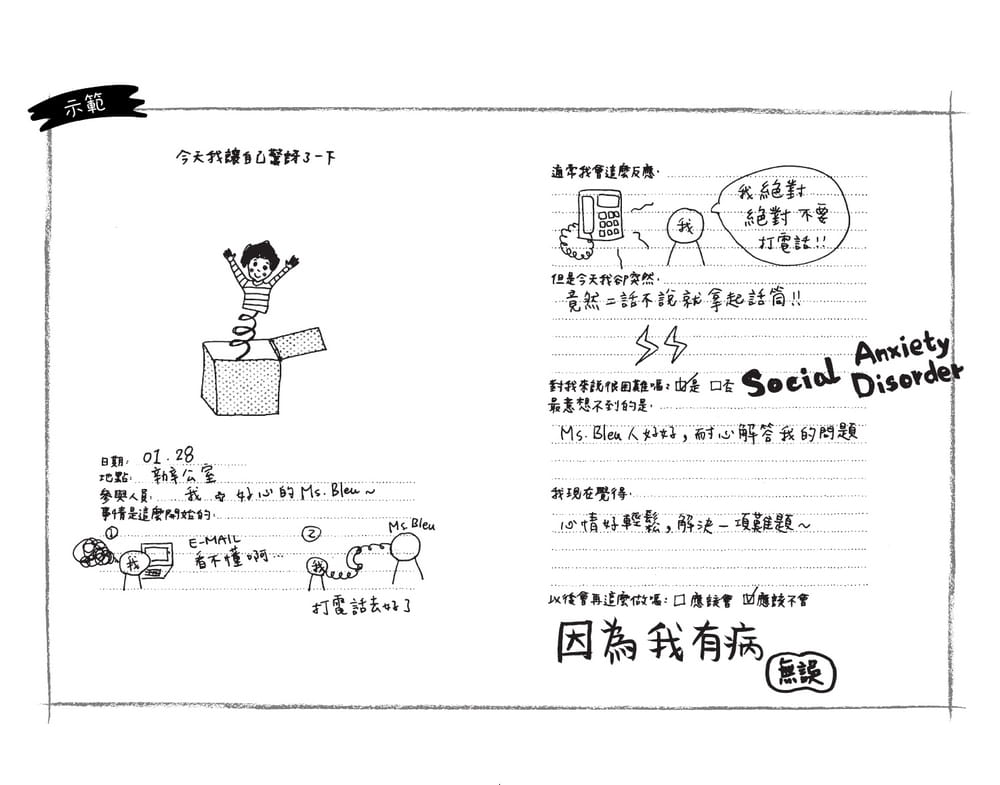 示範
今天我讓自己驚訝了一下
日期: 01.28
地點: 辦公室
參與人員: 我 & 好心的 Ms. Bleu~
事情是這麼開始的.
① 我
E-MAIL
看不懂啊…
② 我
Ms Bleu
打電話去好了
通常我會這麼反應.
我
我絕對
絕對不要
打電話!!
但是今天我卻突然.
竟然二話不說就拿起話筒!!
對我來說很困難嗎: ☑是 □否
Social Anxiety
Disorder
最意想不到的是.
Ms. Bleu 人好好,耐心解答我的問題
我現在覺得.
心情好輕鬆,解決一項難題~
以後會再這麼做嗎: □應該會 ☑應該不會
因為我有病
無誤